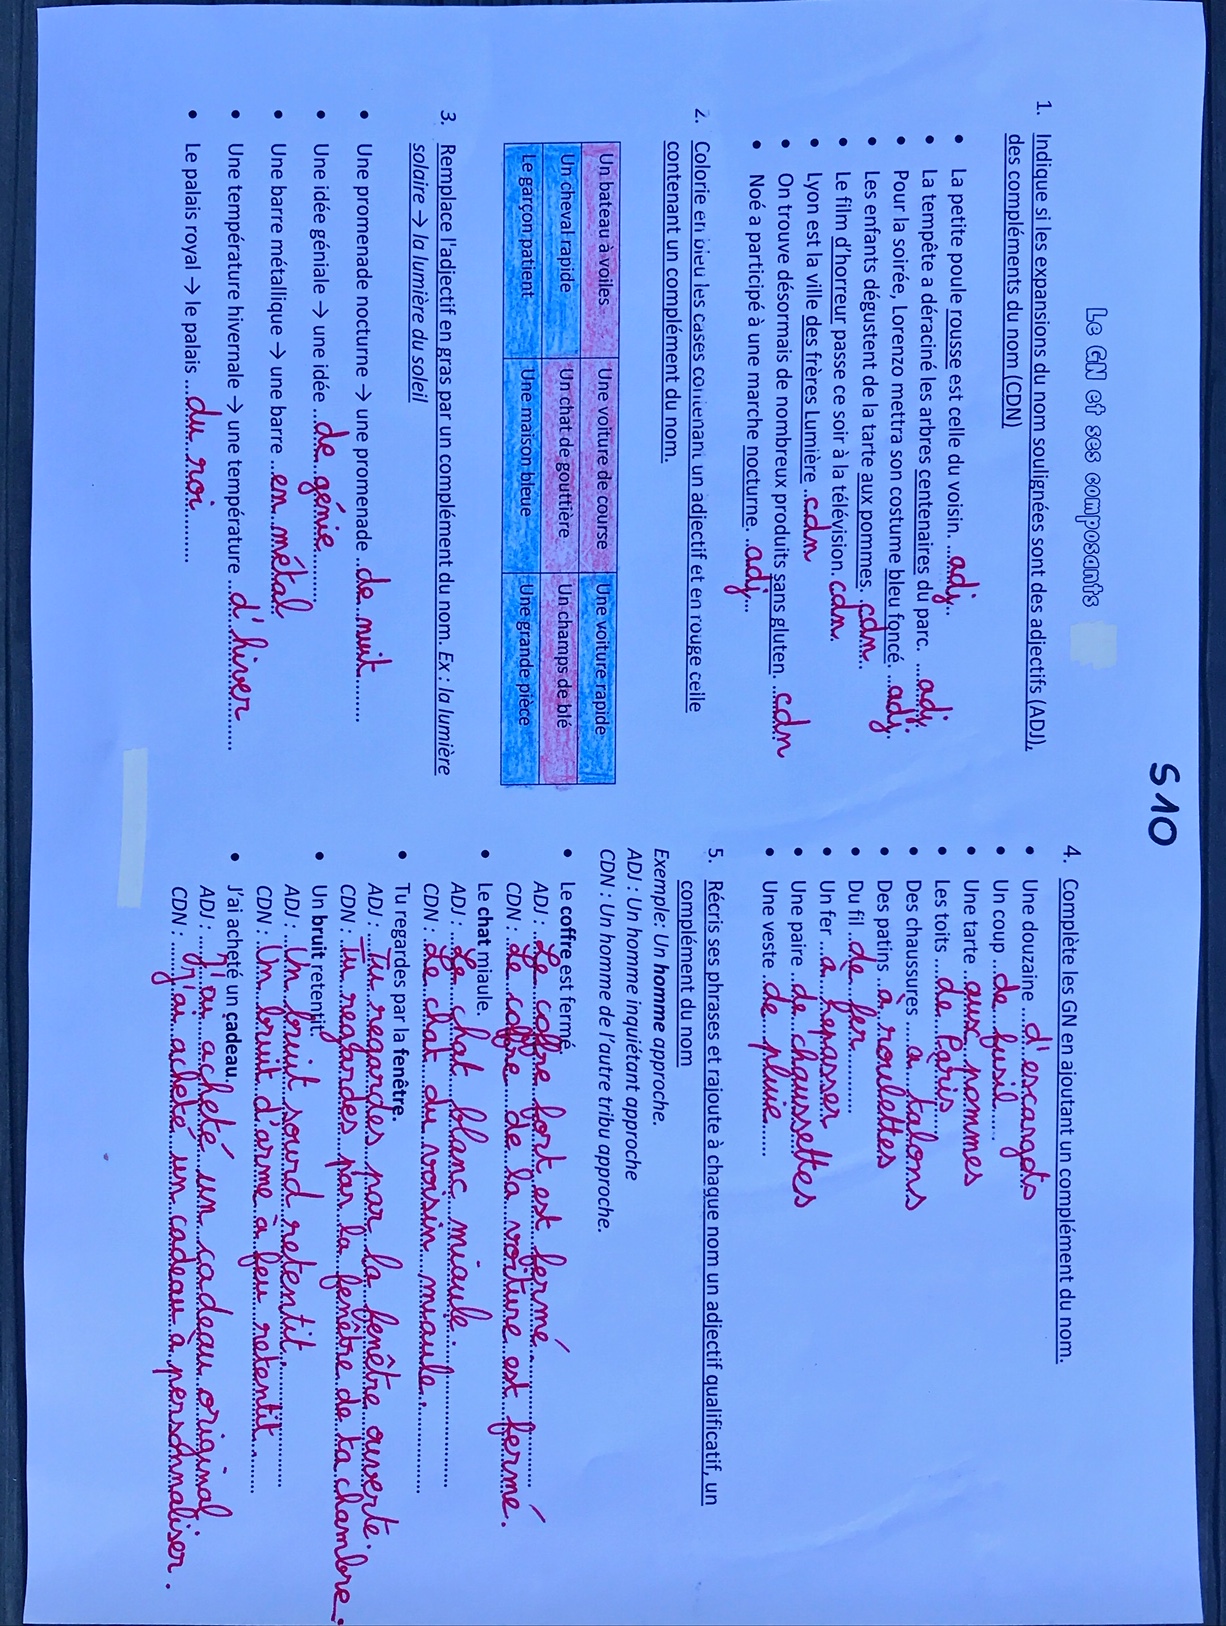 S10
Le GN et ses composants
1. Indique si les expansions du nom soulignées sont des adjectifs (ADJ),
des compléments du nom (CDN)
• La petite poule rousse est celle du voisin. ....adj...
• La tempête a déraciné les arbres centenaires du parc. ....adj.
• Pour la soirée, Lorenzo mettra son costume bleu foncé. ...adj.
• Les enfants dégustent de la tarte aux pommes. .cdn...
• Le film d'horreur passe ce soir à la télévision. cdn.
• Lyon est la ville des frères Lumière ..cdn
• On trouve désormais de nombreux produits sans gluten. ...cdn
• Noé a participé à une marche nocturne. ..adj...
2. Colorie en bleu les cases contenant un adjectif et en rouge celle
contenant un complément du nom.
Un bateau à voiles Une voiture de course Une voiture rapide
Un cheval rapide Un chat de gouttière Un champs de blé
Le garçon patient Une maison bleue Une grande pièce
3. Remplace l'adjectif en gras par un complément du nom. Ex : la lumière
solaire → la lumière du soleil
• Une promenade nocturne → une promenade ...de nuit.........
• Une idée géniale → une idée ....de génie..........
• Une barre métallique → une barre ...en métal
• Une température hivernale → une température ...d'hiver......
• Le palais royal → le palais ....du roi............
4. Complète les GN en ajoutant un complément du nom.
• Une douzaine ...d'escargots
• Un coup ..de fusil......
• Une tarte ..aux pommes
• Les toits ....de Paris.....
• Des chaussures ....à talons
• Des patins ..à roulettes
• Du fil ..de fer..........
• Un fer ...à repasser
• Une paire ..de chaussettes
• Une veste ..de pluie......
5. Récris ses phrases et rajoute à chaque nom un adjectif qualificatif, un
complément du nom
Exemple: Un homme approche.
ADJ : Un homme inquiétant approche
CDN : Un homme de l'autre tribu approche.
• Le coffre est fermé.
ADJ : ..Le coffre fort est fermé..........
CDN : Le coffre de la voiture est fermé.
• Le chat miaule.
ADJ : ..Le chat blanc miaule...........
CDN : Le chat du voisin miaule...........
• Tu regardes par la fenêtre.
ADJ : ...Tu regardes par la fenêtre ouverte.
CDN : Tu regardes par la fenêtre de ta chambre.
• Un bruit retentit.
ADJ : ..Un bruit sourd retentit...........
CDN : Un bruit d'arme à feu retentit.......
• J'ai acheté un cadeau.
ADJ : ....J'ai acheté un cadeau original
CDN : ......J'ai acheté un cadeau à personnaliser.